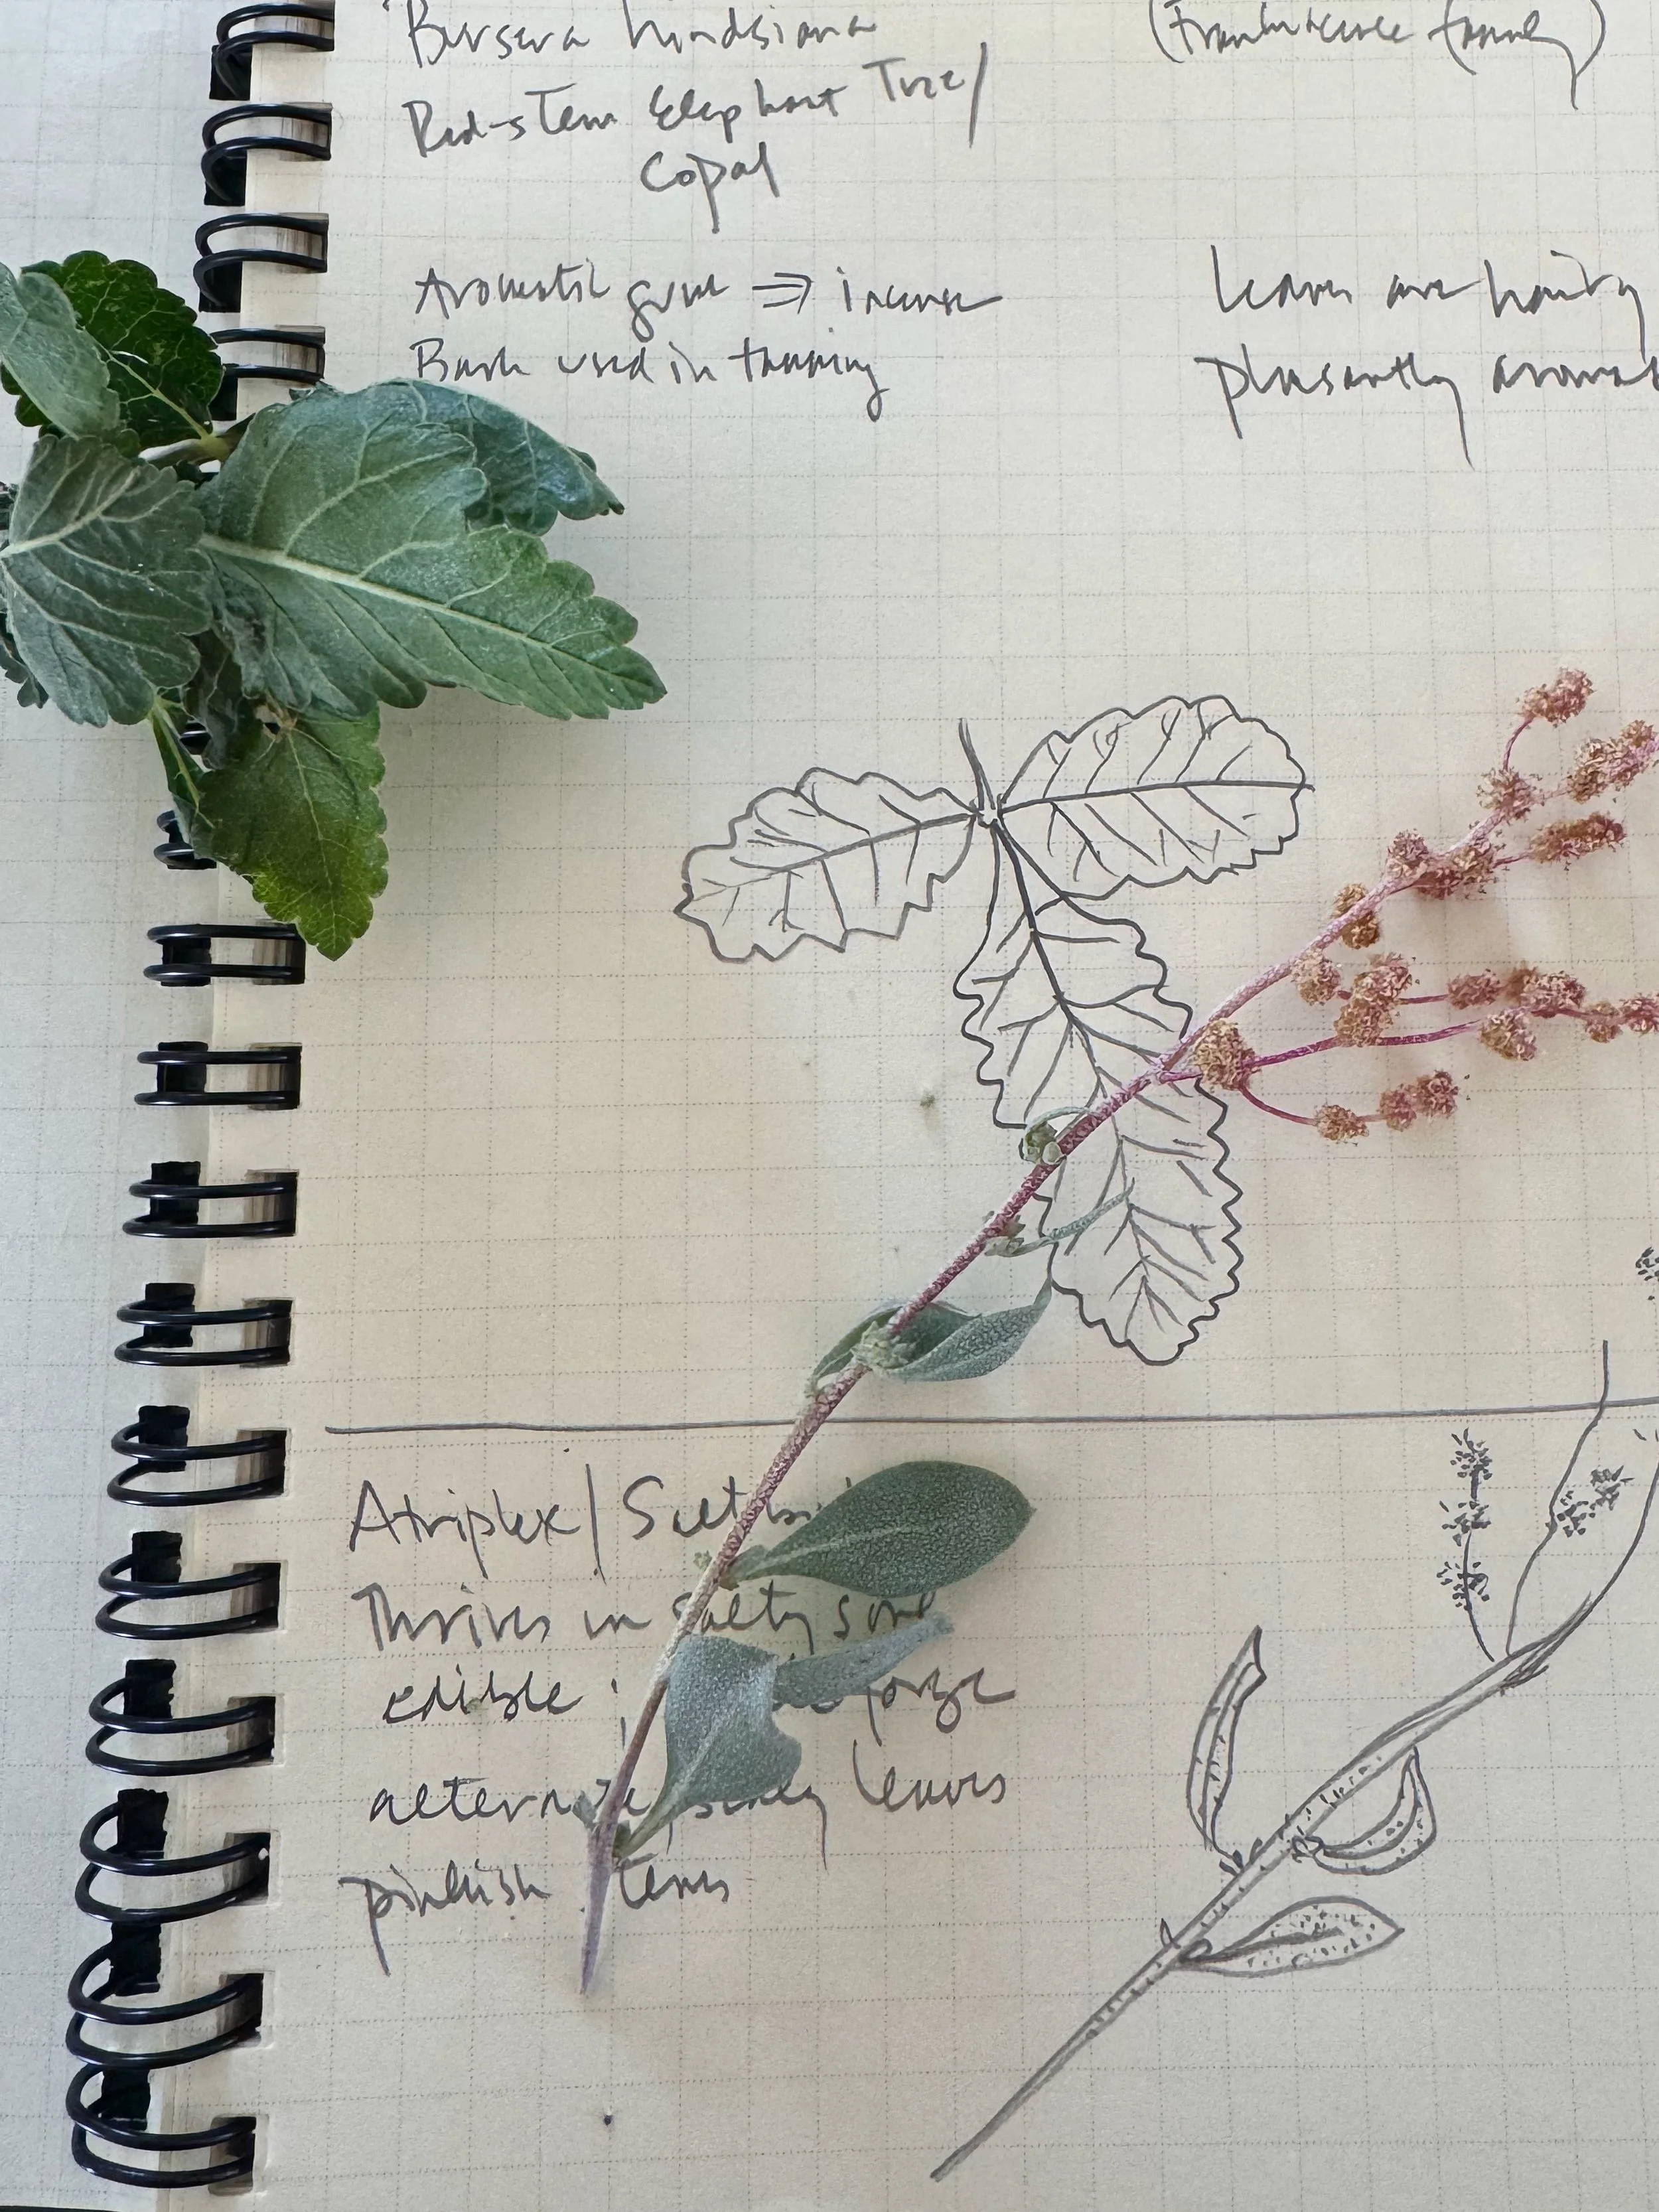 Bursera hindsiana (Frankincense family)
Red-stem Elephant Tree/
Copal
Aromatic gum ⇒ incense
Bark used in tanning
leaves are hairy
pleasantly aromat
Atriplex / Saltb
Thrives in salty soil
edible ; forage
alternate, scaley leaves
pinkish stems